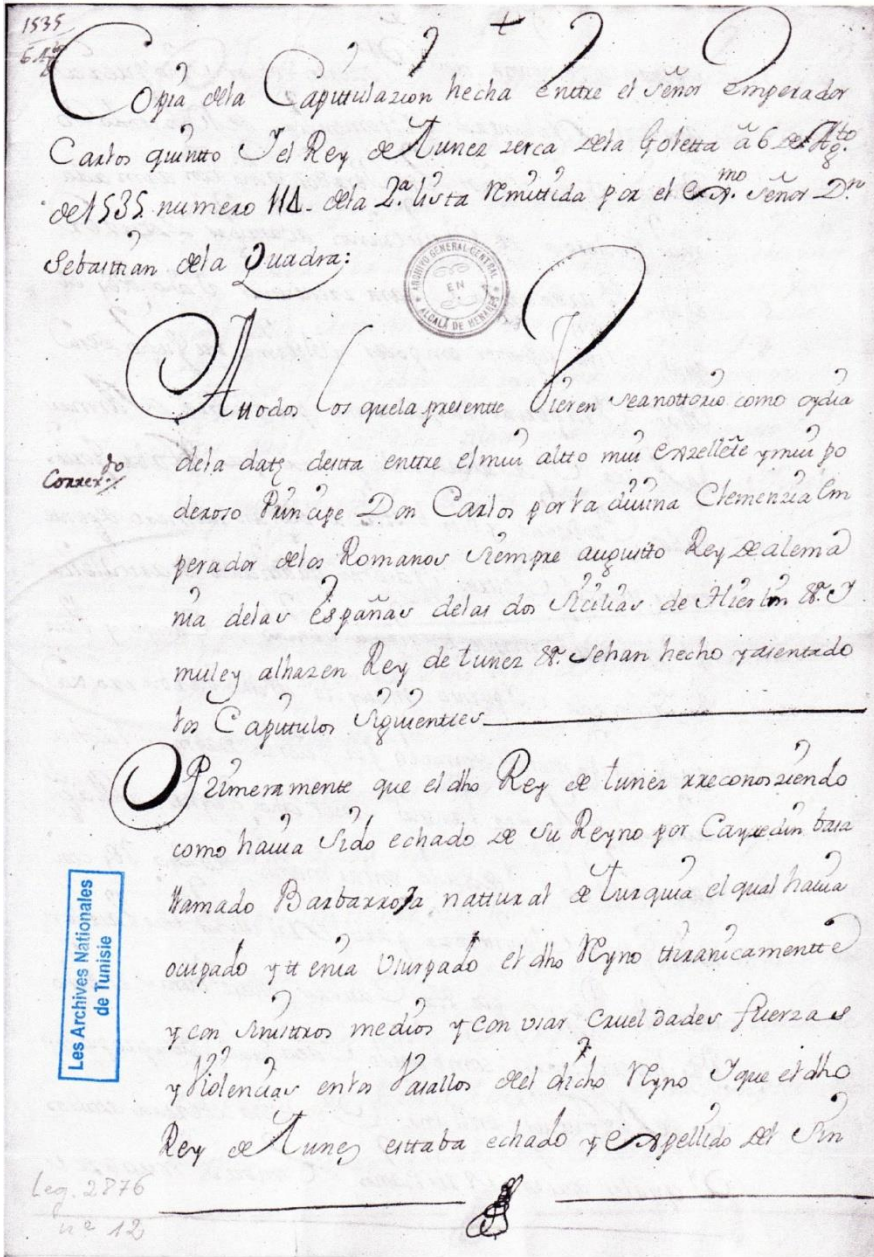 1535
6 Agto
Copia dela Capittulazion hecha enttre el Señor Emperador
Carlos quintto Y el Rey de Tunez zerca dela Goletta â 6 de Agto.
de 1535 numero 114. dela 2.ª lista remittida por el Exmo. Señor Dn.
Sebasttian dela Quadra:
ARCHIVO GENERAL CENTRAL
EN
ALCALÁ DE HENARES
A ttodos los quela presentte Vieren sea nottorio como oy dia
dela datte destta enttre el mui altto mui exzellette y mui po
Correxdo
deroso Principe Don Carlos por la diuina Clemenzia Em
perador delos Romanos siempre augustto Rey de alema
nia delas españas delas dos sicilias de Hierlm &ª. Y
muley alhazen Rey de tunez &ª. se han hecho y asentado
los Capittulos siguienttes
Primeramente que el dho Rey de tunez rreconosziendo
como hauia sido echado de su Reyno por Cayredin basa
llamado Barbarroja nattural de turquia el qual hauia
ocupado y ttenia Vsurpado el dho Reyno ttiranicamentte
y con sinisttros medios y con vsar crueldades fuerzas
y Violencias en los Vasallos del dicho Reyno Y que el dho
Rey de Tunez esttaba echado y expellido del sin
Les Archives Nationales
de Tunisie
Leg. 2876
nº 12